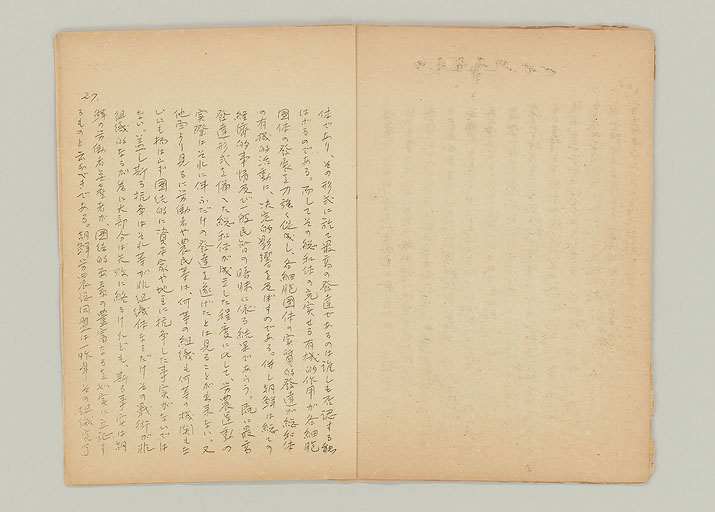 体であり、その形式に於て最高の発達であるのは誰しも否認する能
はざるのである。而してその総和体の充実せる有機的作用が各細胞
団体の発展を力強く促成し各細胞団体の実質的発達が総和体
の有機的活動に、決定的影響を及ぼすのである。併し朝鮮は総ての
経済的事情及び一般民智の曚昧に依る結果であらう。既に最高
発達形式を備へた総和体が成立した程度に比して労農運動の
実際はそれに伴ふだけの発達を遂げたとは見ることが出来ない。又
他面より見るに労働者や農民等は、何等の組織も何等の機関もな
いにも拘はらず団結的に資本家や地主に抗争した事実がないでは
ない。蓋し斯る抗争はそれ等が非組織体なるだけその戦術が非
組織的なるが為に大部分は失敗に終るけれども、斯る事実は朝
鮮の労働者無産者が団結的要素の豊富なるを如実に立証す
るものと云ふべきである。朝鮮労農総同盟は昨年その組織完了
27